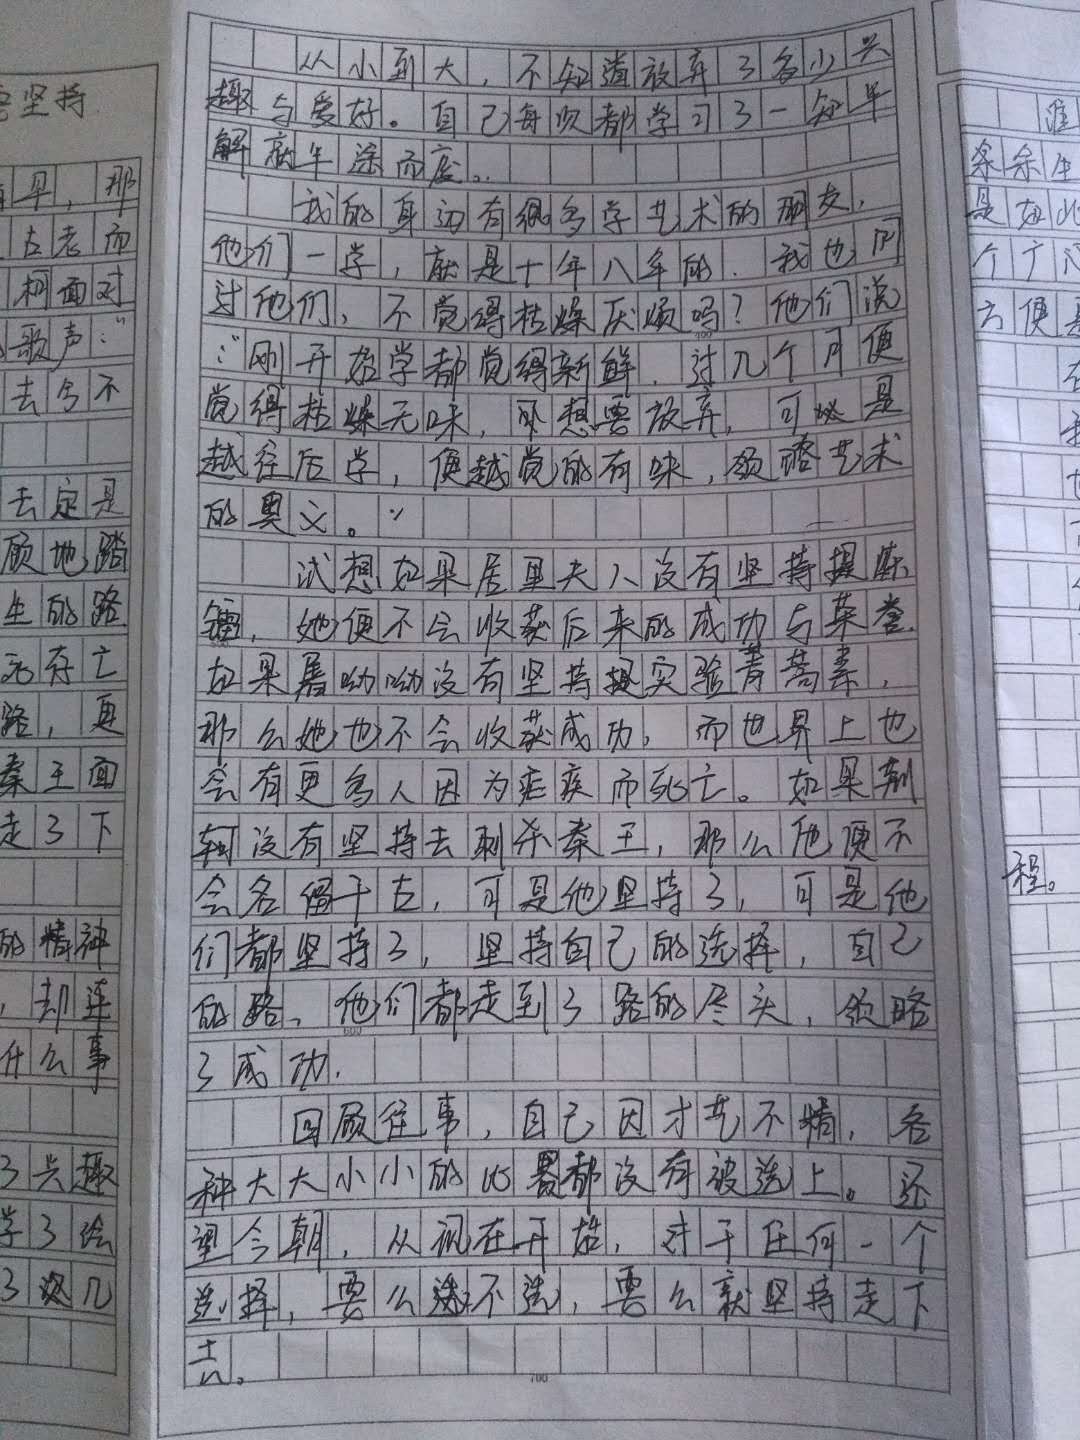 坚持
早，那
古老而
柯面对
歌声："
去兮不
去定是
顾地踏
生的路
元存亡
路，更
秦王面
走了下
的精神
，却连
什么事
了兴趣
学了绘
了没几
从小到大，不知道放弃了多少兴
趣与爱好。自己每次都学习了一知半
解就半途而废。
我的身边有很多学艺术的朋友，
他们一学，就是十年八年的．我也问
过他们，不觉得枯燥厌烦吗？他们说
："刚开始学都觉得新鲜．过几个月便
觉得枯燥无味，即想要放弃，可必是
越往后学，便越觉的有味，领略艺术
的奥义。"
试想如果居里夫人没有坚持提炼
镭，她便不会收获后来的成功与荣誉．
如果屠呦呦没有坚持提实验青蒿素，
那么她也不会收获成功，而世界上也
会有更多人因为疟疾而死亡。如果荆
轲没有坚持去刺杀秦王，那么他便不
会名留千古，可是他坚持了，可是他
们都坚持了，坚持自己的选择，自己
的路、他们都走到了路的尽头，领略
了成功．
回顾往事，自己因才艺不精，各
种大大小小的比赛都没有被选上。还
望今朝，从现在开始，对于任何一个
选择，要么选不选，要么就坚持走下
去。
500
600
700
是如此
个广
方便是
程。